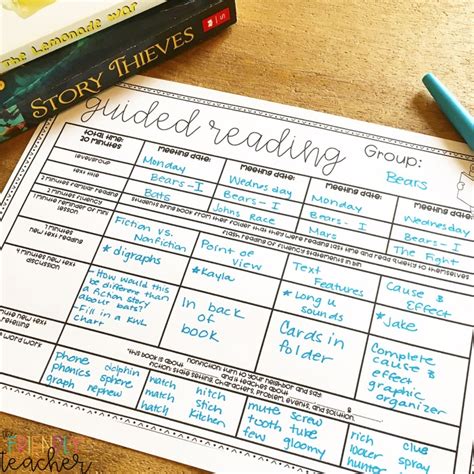 The Lemonade War
STORY THIEVES
guided reading
Group:
Bears
Total time:
20 minutes
Meeting date:
Monday
Meeting date:
Wednesday
Meeting date:
Monday
Meeting date:
Wednesday
level/group
Bears - I
Bears - I
Bears - I
Bears - I
text title
Bats
Johns Race
Mars
The Fight
2 minutes familiar reading
Students bring book from their folder that they were reading last time and read quietly to themselves
1 minute reminder of mini lesson
Flash reading of fluency statements in bin
Fiction vs. Nonfiction
Point of View
Text Features
Cause & Effect
minutes
new text reading
* digraphs
* Kayla
* Long u sounds
* Jake
4 minutes new text discussion
- How would this be different than a fiction story about bats?
- Fill in a KWL chart
In back of book
Cards in folder
Complete cause & effect graphic organizer
minute new text retelling
"This book is about
nonfiction: turn your neighbor and say
and it teaches about
fiction: state setting, characters, problem, events, and solution
word work
phone dolphin
phonics sphere
graph nephew
hatch hutch
match stich
hatch kitchen
mute screw
tooth tutor
few gloomy
rich rooster
lober clue
sucker
push
the
FRIENDLY
teacher